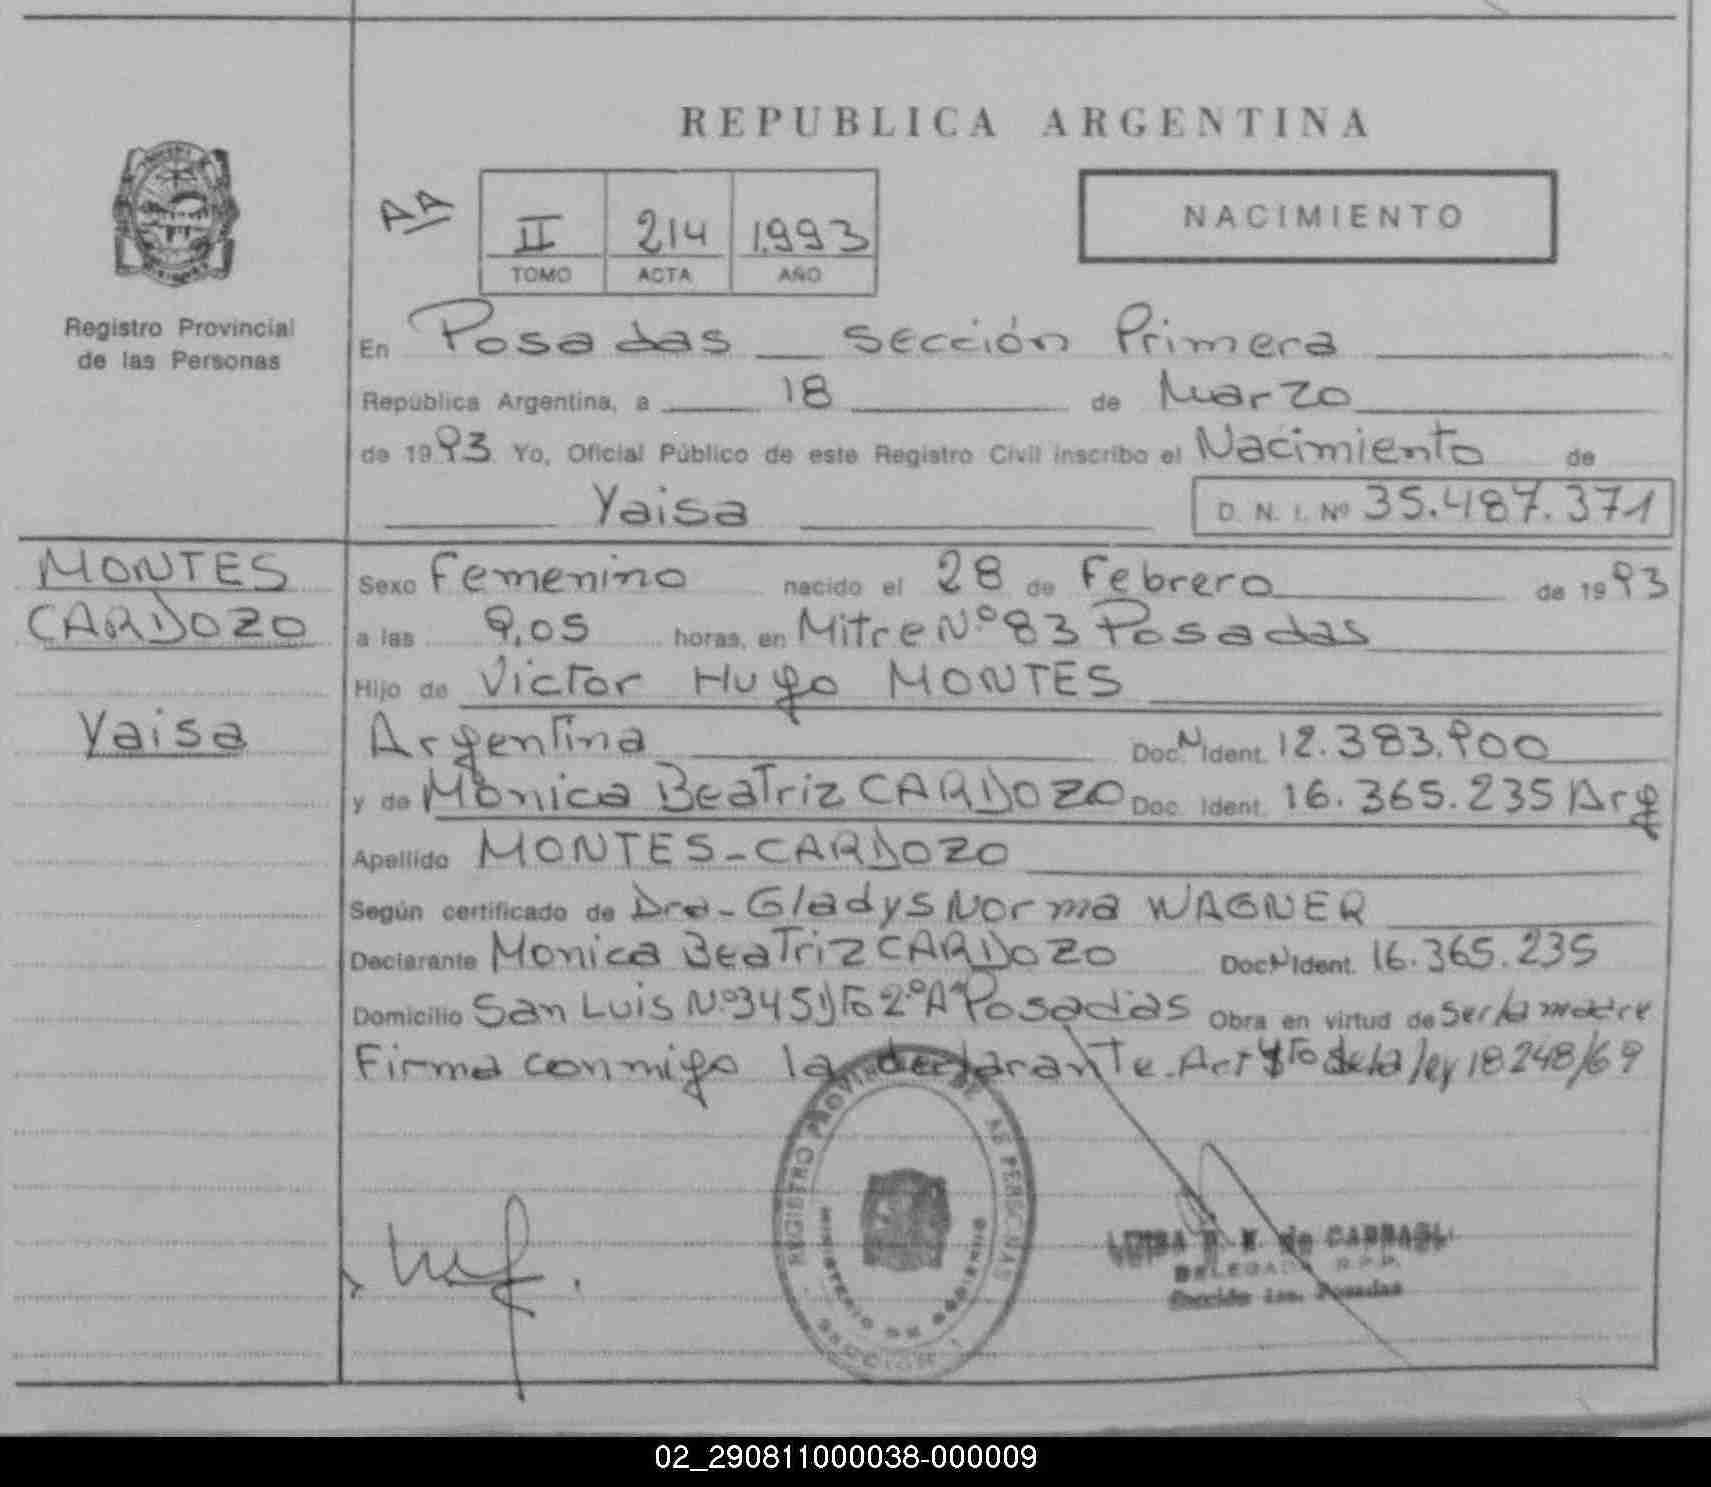 REPUBLICA ARGENTINA
AA
II 214 1.993
TOMO ACTA AÑO
NACIMIENTO
Registro Provincial
de las Personas
En Posadas sección Primera
República Argentina, a 18 de Marzo
de 1993 Yo, Oficial Público de este Registro Civil inscribo el Nacimiento de
Yaisa D. N. I. Nº 35.487.371
MONTES
CARDOZO
Yaisa
Sexo Femenino nacido el 28 de Febrero de 1993
a las 9,05 horas, en Mitre Nº 83 Posadas
Hijo de Victor Hugo MONTES
Argentina Doc. N. Ident. 12.383.900
y de Mónica Beatriz CARDOZO Doc. Ident. 16.365.235 Arg
Apellido MONTES-CARDOZO
Según certificado de Dra- Gladys Norma WAGNER
Declarante Monica Beatriz CARDOZO Doc. N. Ident. 16.365.235
Domicilio San Luis Nº 345 Dto 2º "A" Posadas Obra en virtud de ser la madre
Firma conmigo la declarante. Art 4to de la ley 18248/69
REGISTRO PROVINCIAL DE LAS PERSONAS
MINISTERIO DE GOBIERNO
DELEGADA R.P.P.
Sección 1ra. Posadas
02_290811000038-000009